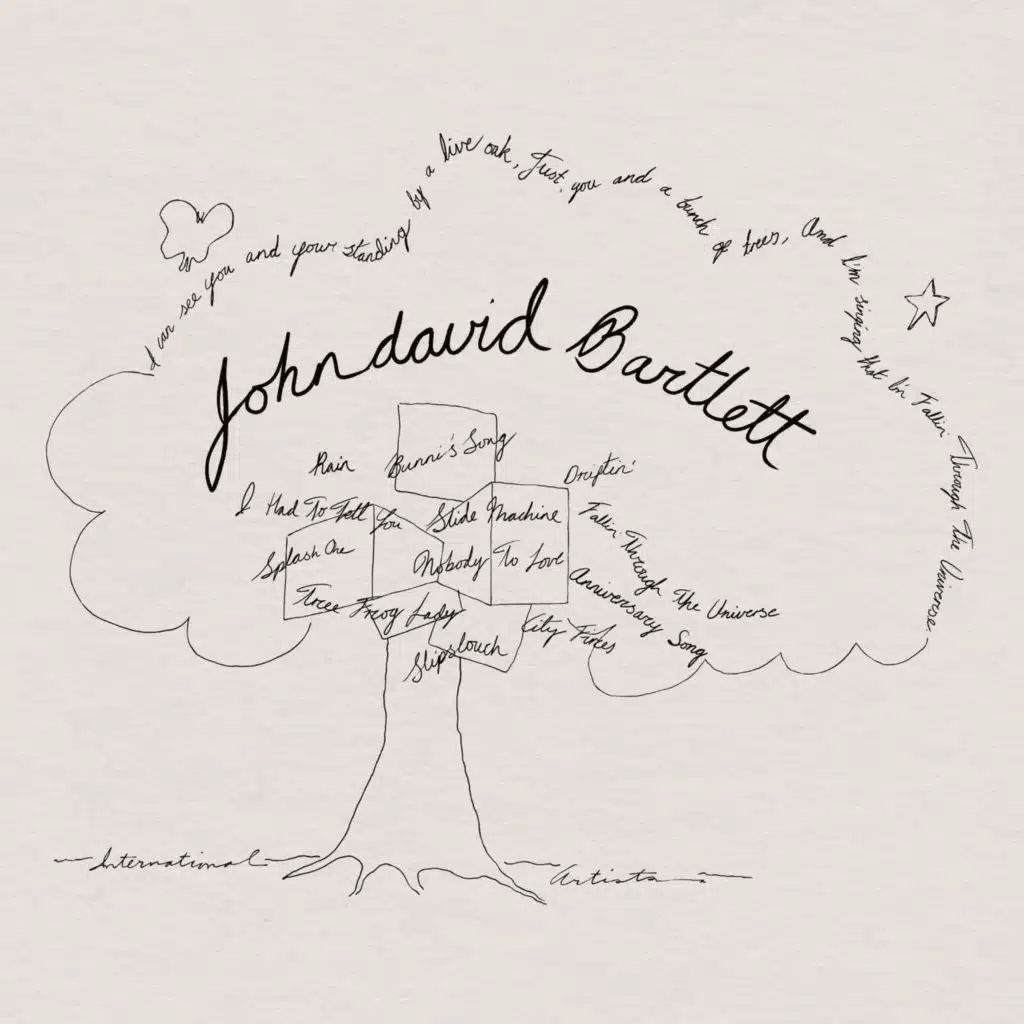 I can see you and your standing by a live oak, Just you and a bunch of trees, And I'm singing that I'm Fallin' Through The Universe.
Johndavid Bartlett
Rain
Bunni's Song
Driftin'
I Had To Tell You
Slide Machine
Fallin' Through The Universe
Splash One
Nobody To Love
Anniversary Song
Tree Frog Lady
City Fires
Slipslouch
International Artists